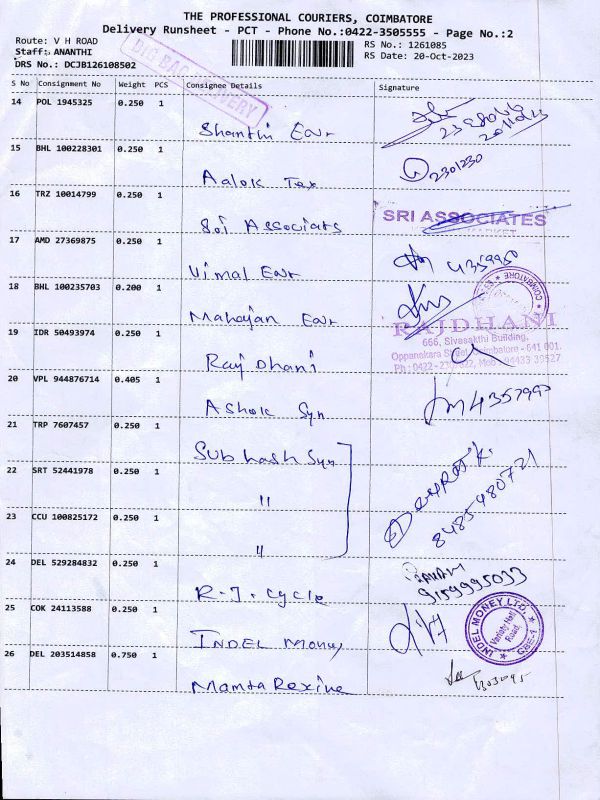 THE PROFESSIONAL COURIERS, COIMBATORE
Delivery Runsheet - PCT - Phone No.:0422-3505555 - Page No.:2
Route: V H ROAD
RS No.: 1261085
Staff: ANANTHI
RS Date: 20-Oct-2023
DRS No.: DCJB126108502
BIG BAG DELIVERY
S No Consignment No Weight PCS Consignee Details Signature
14 POL 1945325 0.250 1
Shanthi Ent
15 BHL 100228301 0.250 1
2301230
Aalok Tex
16 TRZ 10014799 0.250 1
SRI ASSOCIATES
MARKET
Sri Associats
17 AMD 27369875 0.250 1
4359950
Vimal Ent
18 BHL 100235703 0.200 1
COIMBATORE
Mahajan Ent
RAJDHANI
19 IDR 50493974 0.250 1
666, Sivasakthi Building,
Oppanakara Street, Coimbatore - 641 001.
Raj Dhani
20 VPL 944876714 0.405 1
Ashok Syn
21 TRP 7607457 0.250 1
Subhash Syn
22 SRT 52441978 0.250 1
"
8485480721
23 CCU 100825172 0.250 1
"
24 DEL 529284832 0.250 1
9159995033
R.J. cycle
25 COK 24113588 0.250 1
INDEL MONEY LTD.
Variety Hall
Road,
CBE-1
INDEL Money
26 DEL 203514858 0.750 1
Mamta Rexine